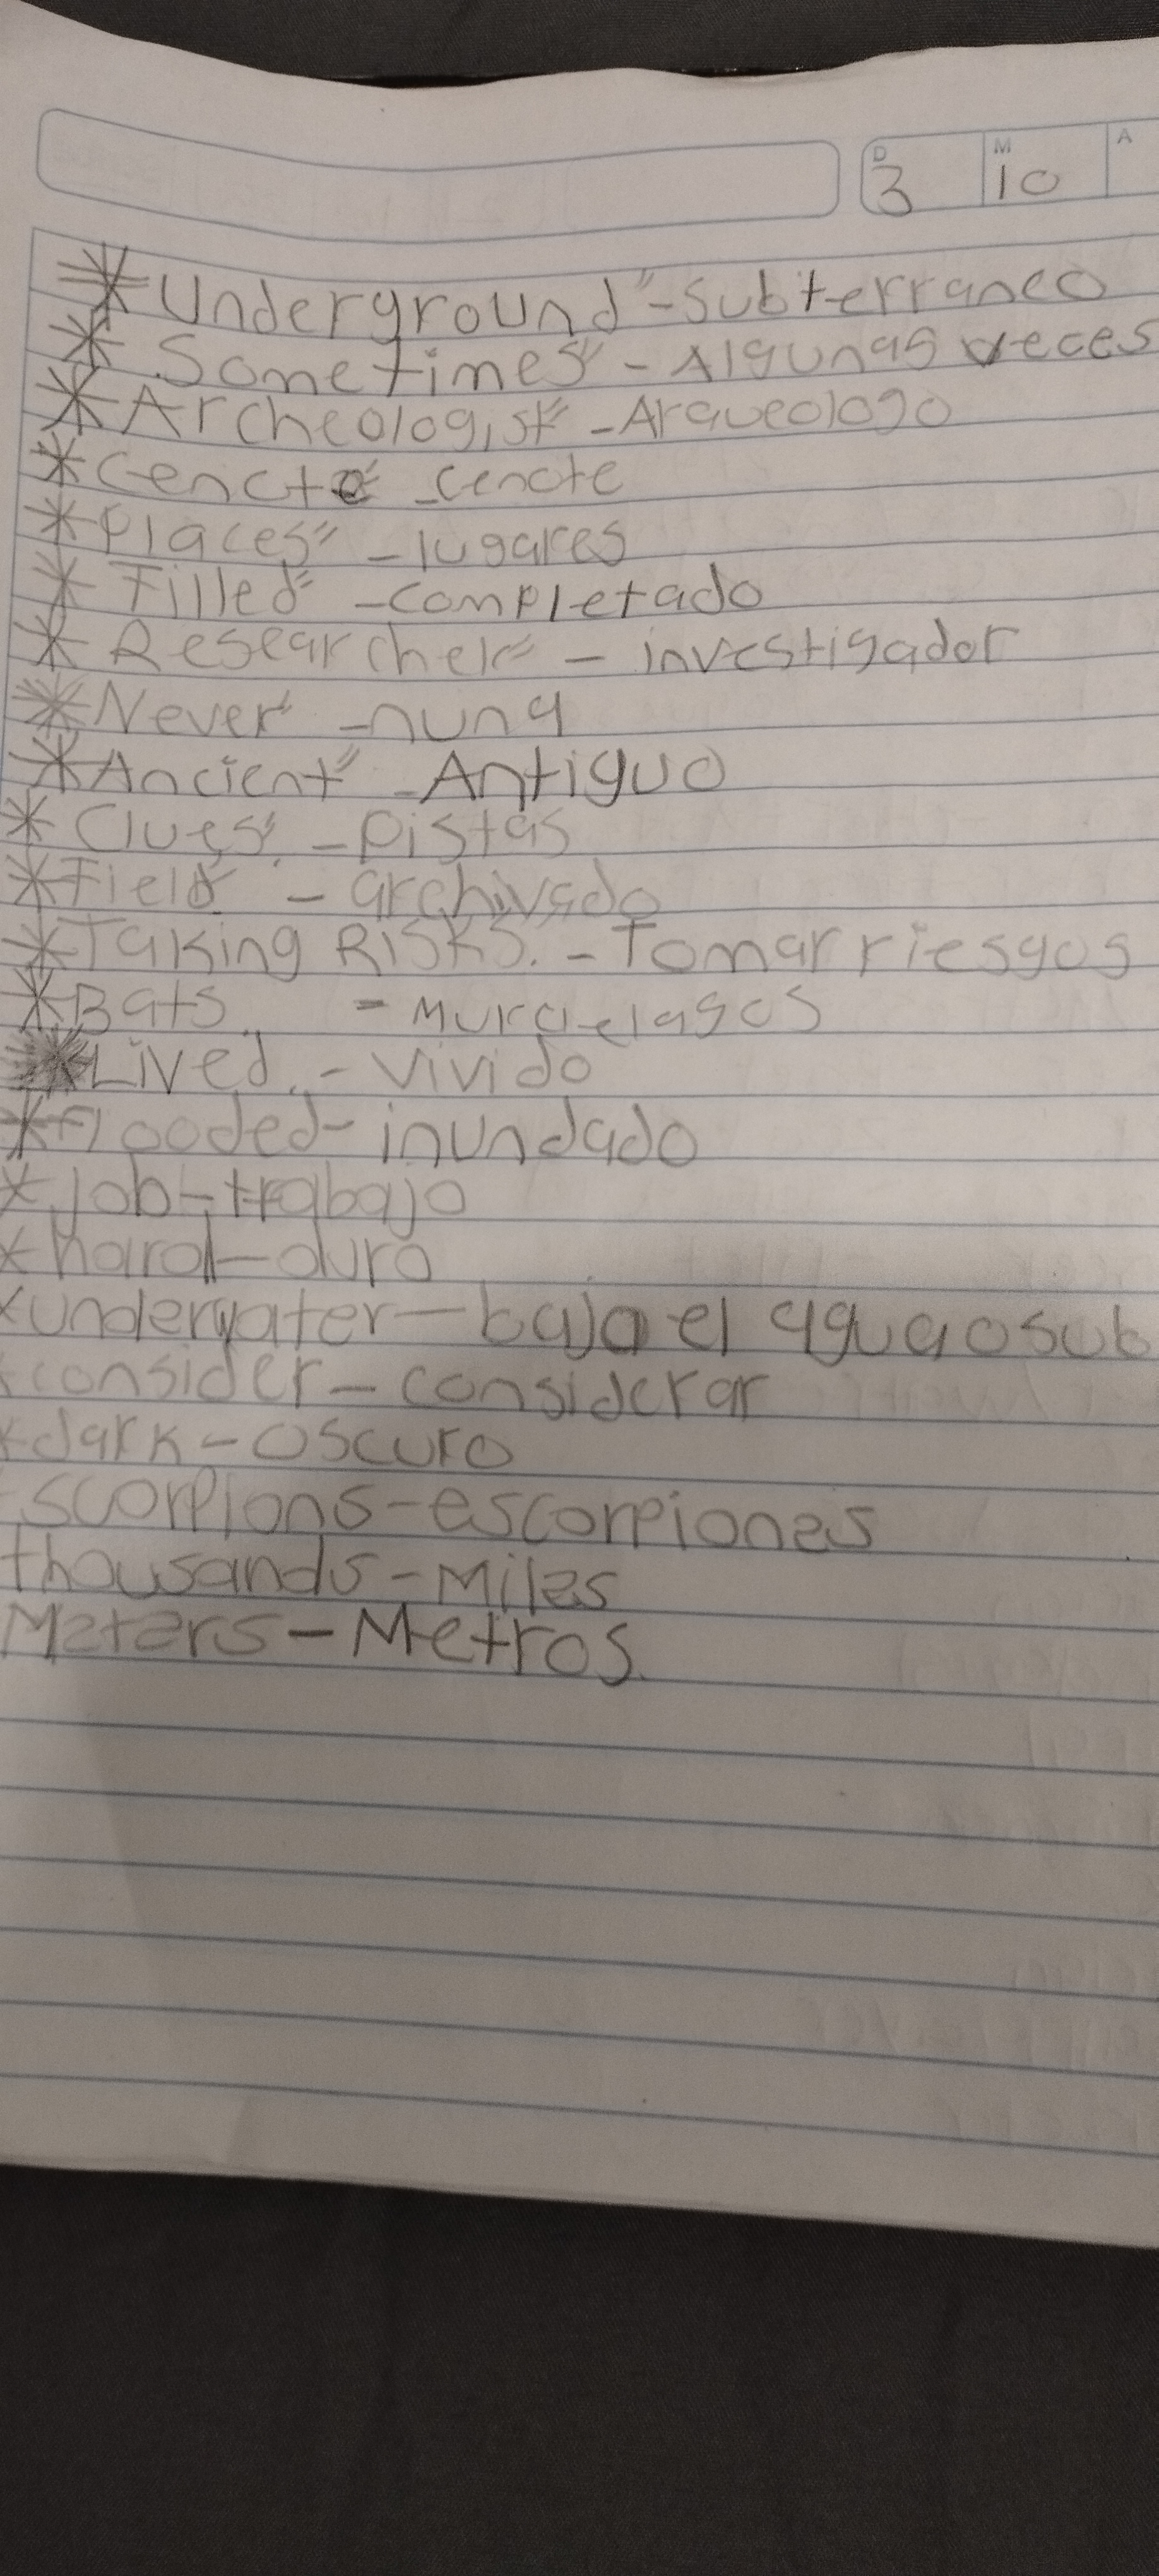 D 3 M 10 A
* Underground" - subterraneo
* Sometimes" - Algunas veces
* Archeologist" - Arqueologo
* Cencte" - cenote
* Places" - lugares
* Filled" - completado
* Researcher" - investigador
* Never" - nunq
* Ancient" - Antiguo
* Clues". - Pistas
* Field" - archivado
* Taking Risks. - Tomar riesgos
* Bats. - Murcielagos
* Lived. - Vivido
* Flooded - inundado
* job - trabajo
* hard - duro
* underwater - bajo el agua o sub
* consider - considerar
* dark - oscuro
scorpions - escorpiones
thousands - Miles
Meters - Metros.